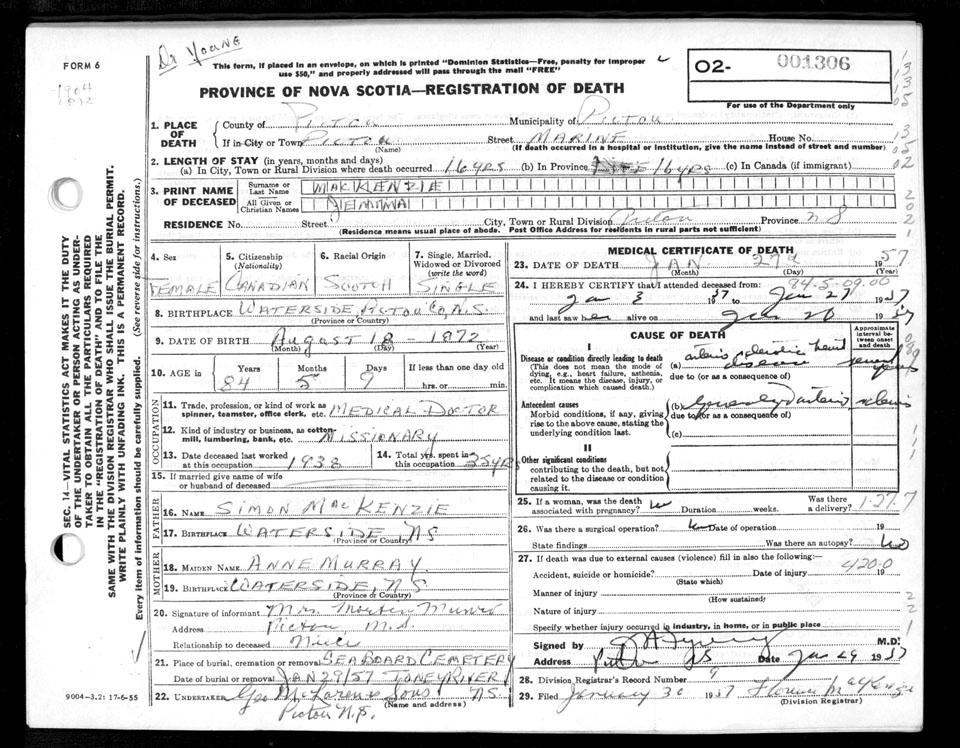 Dr Young
FORM 6
1904
1872
This form, if placed in an envelope, on which is printed "Dominion Statistics—Free, penalty for improper
use $50," and properly addressed will pass through the mail "FREE"
02- 001306
For use of the Department only
PROVINCE OF NOVA SCOTIA—REGISTRATION OF DEATH
1. PLACE OF DEATH
County of Pictou Municipality of Pictou
If in City or Town Pictou (Name) Street MARINE House No.
(If death occurred in a hospital or institution, give the name instead of street and number)
2. LENGTH OF STAY (in years, months and days)
(a) In City, Town or Rural Division where death occurred 16 yrs (b) In Province 16 yrs (c) In Canada (if immigrant)
3. PRINT NAME OF DECEASED
Surname or Last Name MACKENZIE
All Given or Christian Names JEMIMA
RESIDENCE No. Street City, Town or Rural Division Pictou Province NS
(Residence means usual place of abode. Post Office Address for residents in rural parts not sufficient)
4. Sex FEMALE
5. Citizenship (Nationality) CANADIAN
6. Racial Origin SCOTCH
7. Single, Married, Widowed or Divorced (write the word) SINGLE
8. BIRTHPLACE WATERSIDE, PICTOU CO, N.S.
(Province or Country)
9. DATE OF BIRTH August 18 - 1872
(Month) (Day) (Year)
10. AGE in Years 84 Months 5 Days 9 If less than one day old hrs. or min.
OCCUPATION
11. Trade, profession, or kind of work as spinner, teamster, office clerk, etc. MEDICAL DOCTOR
12. Kind of industry or business, as cotton-mill, lumbering, bank, etc. MISSIONARY
13. Date deceased last worked at this occupation 1938
14. Total yrs. spent in this occupation 35 yrs
15. If married give name of wife or husband of deceased
FATHER
16. NAME SIMON MACKENZIE
17. BIRTHPLACE WATERSIDE NS
(Province or Country)
MOTHER
18. MAIDEN NAME ANNE MURRAY
19. BIRTHPLACE WATERSIDE, N S
(Province or Country)
20. Signature of informant Mrs. Munro
Address Pictou N.S.
Relationship to deceased Niece
21. Place of burial, cremation or removal SEABOARD CEMETERY
Date of burial or removal JAN 29/57 TONEY RIVER
22. UNDERTAKER Geo McLaren & Sons NS
(Name and address)
Pictou N.S.
9004—3.21 17-6-55
MEDICAL CERTIFICATE OF DEATH
23. DATE OF DEATH JAN 27th 1957
(Month) (Day) (Year)
84-5-09.00
24. I HEREBY CERTIFY that I attended deceased from:
Jan 3 1937 to Jan 27 1957
and last saw her alive on Jan 26 1957
CAUSE OF DEATH
Approximate interval between onset and death
I
Disease or condition directly leading to death
(This does not mean the mode of dying, e.g., heart failure, asthenia, etc. It means the disease, injury, or complication which caused death.)
(a) arterio sclerotic heart disease several years
due to (or as a consequence of)
Antecedent causes
Morbid conditions, if any, giving rise to the above cause, stating the underlying condition last.
(b) Generalized arterio sclerosis
due to (or as a consequence of)
(c)
II
Other significant conditions
contributing to the death, but not related to the disease or condition causing it.
25. If a woman, was the death associated with pregnancy? No Duration weeks. Was there a delivery?
1-27.7
26. Was there a surgical operation? No Date of operation 19
State findings Was there an autopsy? No
27. If death was due to external causes (violence) fill in also the following:—
420.0
Accident, suicide or homicide? (State which) Date of injury 19
Manner of injury
(How sustained)
Nature of injury
Specify whether injury occurred in industry, in home, or in public place
Signed by M.D.
Address Pictou NS Date Jan 29 1957
28. Division Registrar's Record Number 9
29. Filed January 30 1957 Florence MacKenzie
(Division Registrar)
SEC. 14—VITAL STATISTICS ACT MAKES IT THE DUTY
OF THE UNDERTAKER OR PERSON ACTING AS UNDER-
TAKER TO OBTAIN ALL THE PARTICULARS REQUIRED
IN THE "REGISTRATION OF DEATH" AND TO FILE THE
SAME WITH THE DIVISION REGISTRAR WHO SHALL ISSUE THE BURIAL PERMIT.
WRITE PLAINLY WITH UNFADING INK. THIS IS A PERMANENT RECORD.
Every item of information should be carefully supplied. (See reverse side for instructions.)